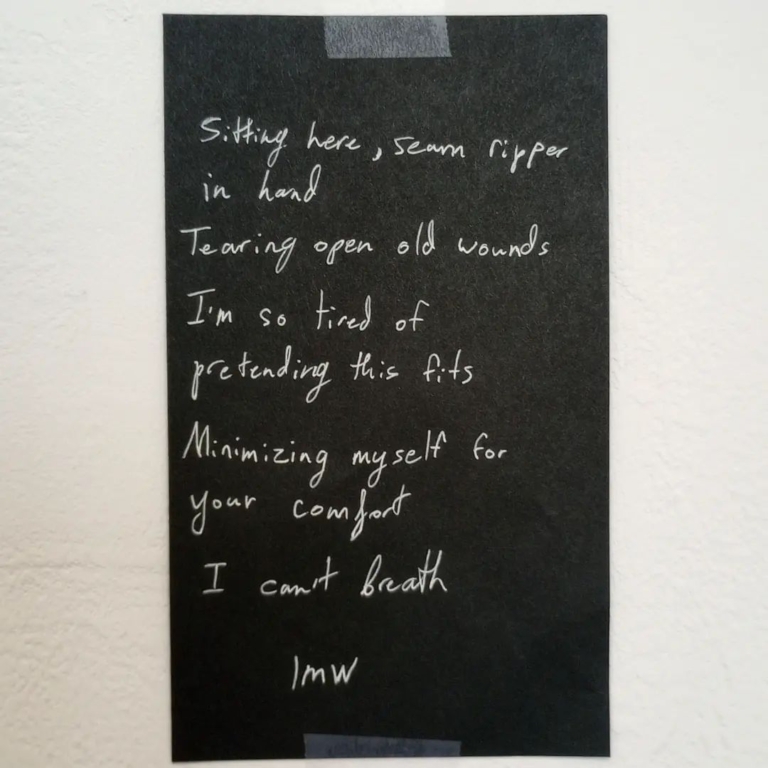 Sitting here, seam ripper
in hand
Tearing open old wounds
I'm so tired of
pretending this fits
Minimizing myself for
your comfort
I can't breath
lmw